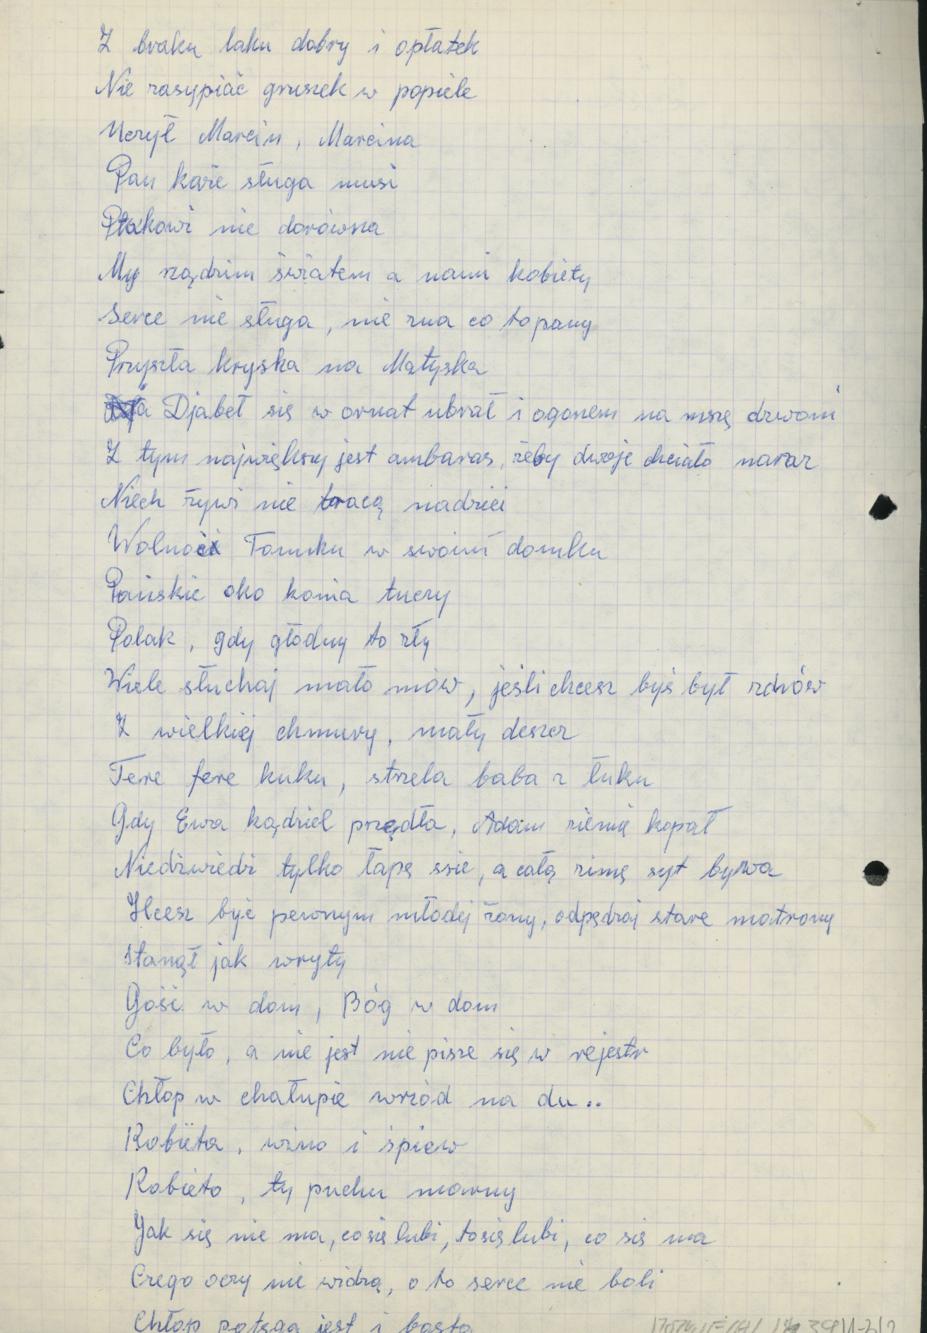 Z braku laku dobry i opłatek
Nie zasypiać gruszek w popiele
Uczył Marcin, Marcina
Pan każe sługa musi
Ptakowi nie dorówna
My rządzim światem a nami kobiety
Serce nie sługa, nie zna co to pany
Przyszła kryska na Matyska
Djabeł się w ornat ubrał i ogonem na mszę dzwoni
Z tym największy jest ambaras, żeby dwoje chciało naraz
Niech żywi nie tracą nadziei
Wolnoć Tomku w swoim domku
Pańskie oko konia tuczy
Polak, gdy głodny to zły
Wiele słuchaj mało mów, jeśli chcesz byś był zdrów
Z wielkiej chmury, mały deszcz
Tere fere kuku, strzela baba z łuku
Gdy Ewa kądziel przędła, Adam ziemię kopał
Niedźwiedź tylko łapę ssie, a całą zimę syt bywa
Hcesz być pewnym młodej żony, odpędzaj stare matrony
Stanął jak wryty
Gość w dom, Bóg w dom
Co było, a nie jest nie pisze się w rejestr
Chłop w chałupie wrzód na du..
Kobieta, wino i śpiew
Kobieto, ty puchu marny
Jak się nie ma, co się lubi, to się lubi, co się ma
Czego oczy nie widzą, o to serce nie boli
Chłop potęgą jest i basta